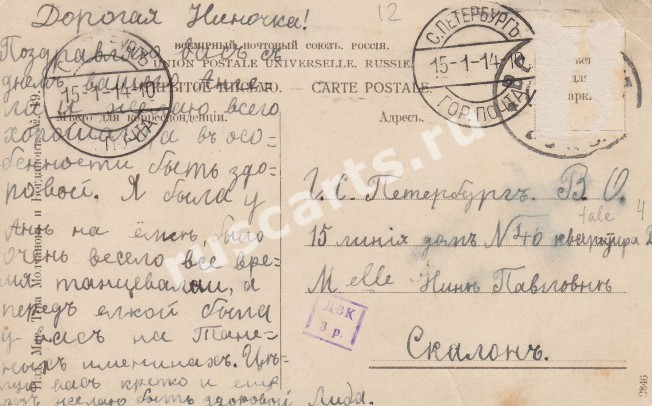 Дорогая Ниночка!
12
Поздравляю васъ съ
днемъ вашего Анге-
ла и желаю всего
хорошаго а въ осо-
бенности быть здо-
ровой. Я была у
Ани на ёлкѣ было
очень весело все вре-
мя танцевали, а
передъ елкой была
у васъ на Тане-
ныхъ именинахъ. Цѣ-
лую васъ крепко и еще
желаю быть здоровой Лида.
ВСЕМІРНЫЙ ПОЧТОВЫЙ СОЮЗЪ. РОССІЯ.
UNION POSTALE UNIVERSELLE. RUSSIE.
ОТКРЫТОЕ ПИСЬМО. — CARTE POSTALE.
Мѣсто для корреспонденціи.
Адресъ.
15-1-14-10
ПОЧТА
С.ПЕТЕРБУРГЪ
15-1-14-10
ГОР. ПОЧТА
Мѣсто
для
марки
Г. С. Петербургъ. В. О.
15 линія домъ № 40 квартира 2
M elle Нинѣ Павловнѣ
Скалонъ.
tale
4
ДВК
3 р.
2846
ruscarts.ru